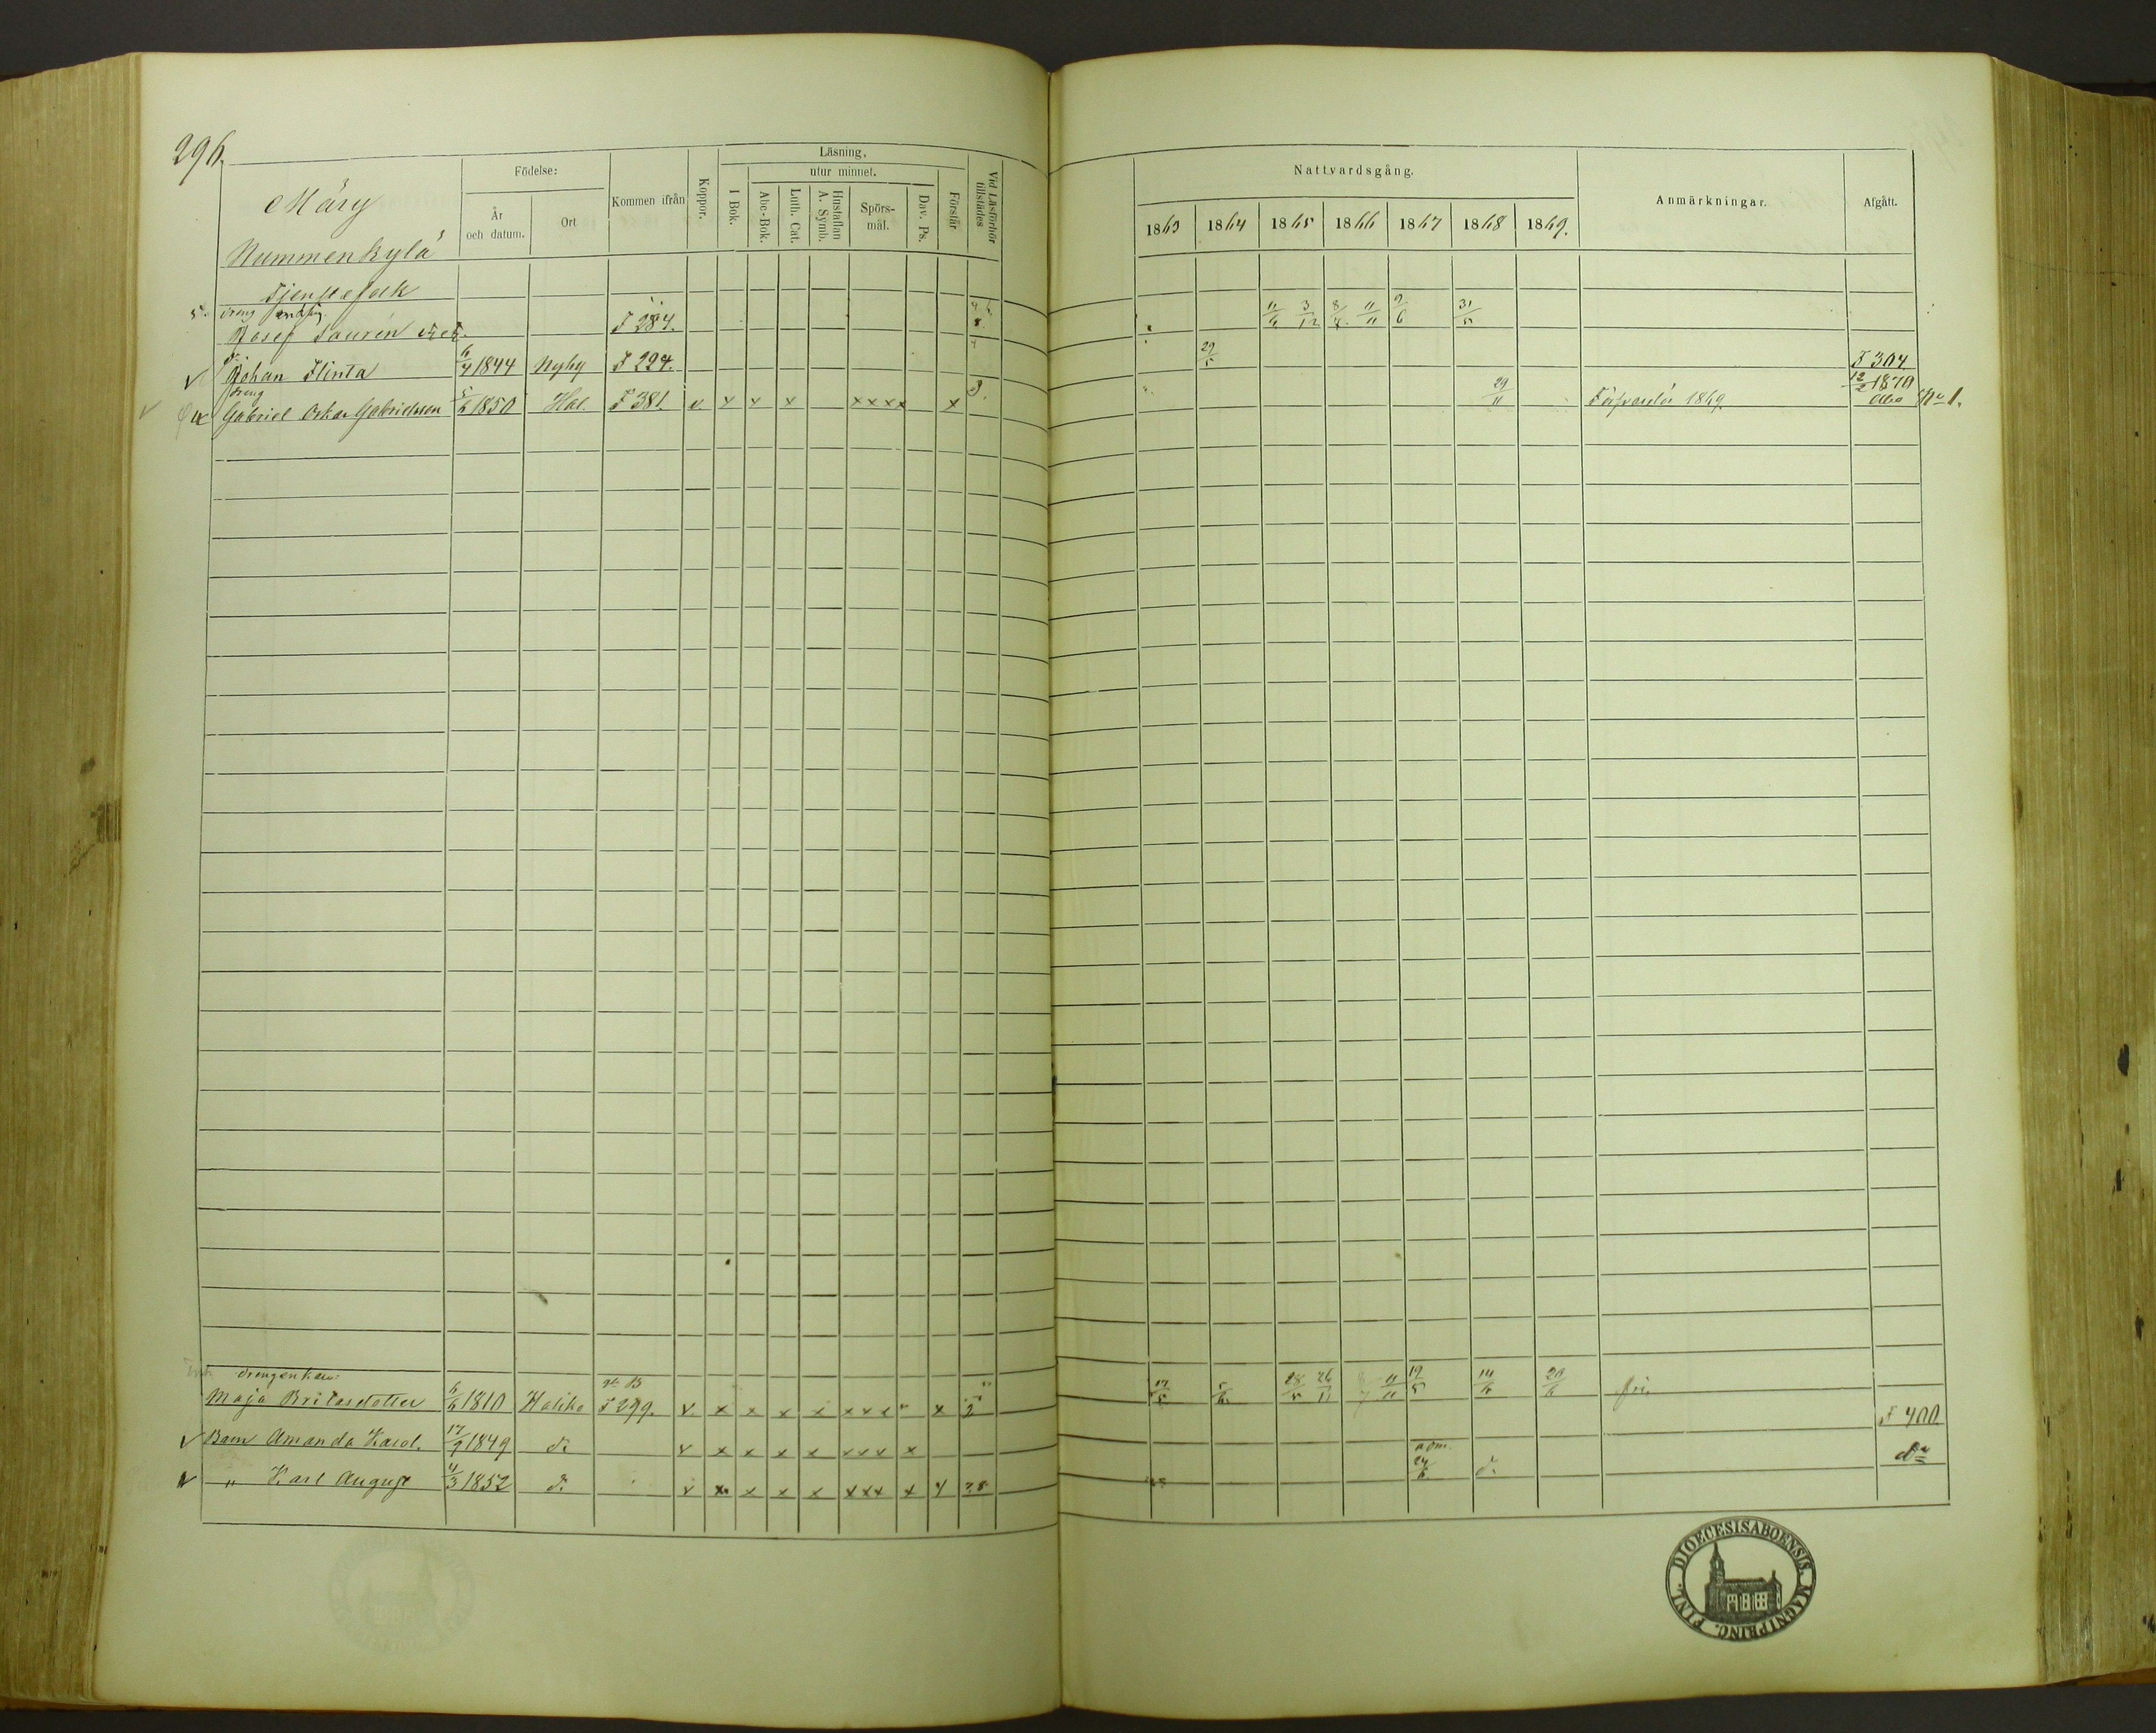 296.
Märy
Nummenkylä
Födelse:
År och datum.
Ort
Kommen ifrån
Koppor.
Läsning,
utur minnet.
I Bok.
Abc-Bok.
Luth. Cat.
Hustaflan A. Symb.
Spörsmål.
Dav. Ps.
Förstår
Vid Läsförhör tillstädes
Nattvardsgång.
1863 1864 1865 1866 1867 1868 1869.
Anmärkningar.
Afgått.
Tjenstefolk
5. dreng
Josef Laurén F 284. 11/6 3/12 9/6 31/5
Johan Flinta 6/4 1844 Nyby F 224. 29/5 F 304
dreng
Gabriel Oskar Gabrielsson 5/6 1850 Hal. F 381. v. x x x xxxx x 3. 29/11 1869. 12/2 1870 Åbo No 1.
Maja Britasdotter 6/6 1810 Haliko F 299. v. x x x x xxx x 2 17/5 5/6 28/5 26/11 11/11 12/5 14/6 20/6
Barn Amanda Karol. 17/9 1849 d:o v x x x x xxx x F 400
" Karl August 4/3 1852 d:o v x x x x xxx x 24/6 d:o do
FINL. DIOECESIS ABOENSIS. MAGNI PRINC.